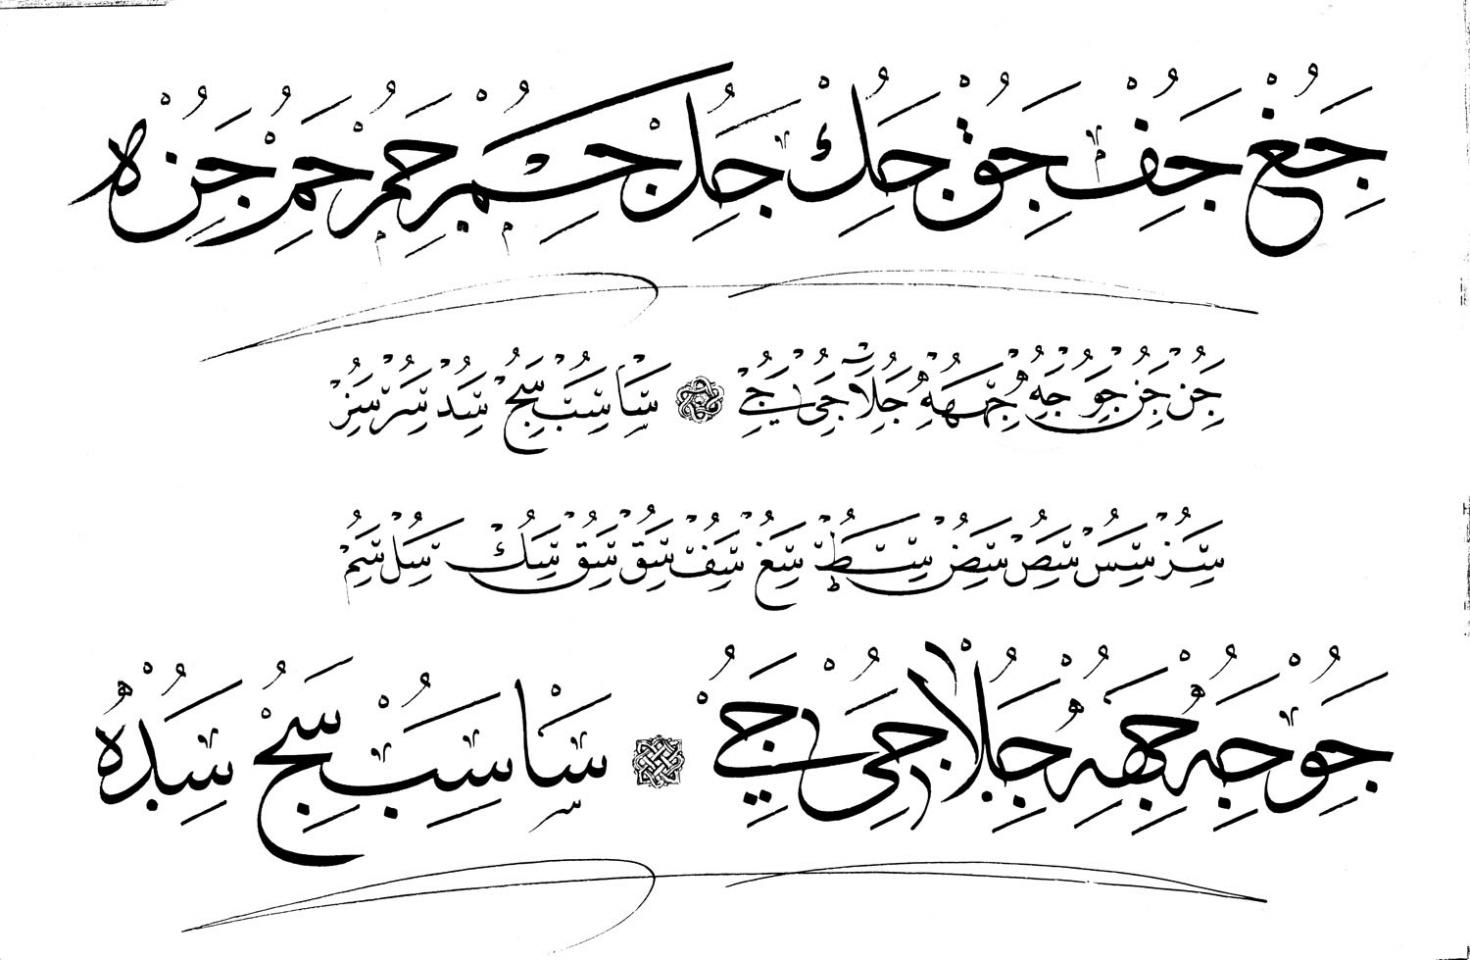 جغ جف جق جك جل جم جم جم جن ه
جن جن جو جه جمهه جلا جى جے سا سب سج سد سر سز
سر سس سص سض سط سغ سف سق سق سك سل سم
جو جه جهه جلا جى جے سا سب سج سد ه